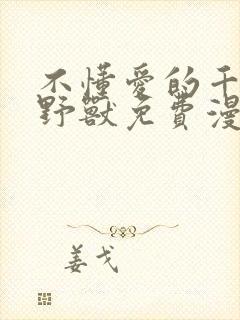 不懂愛的千
野獸免費漫
姜戈